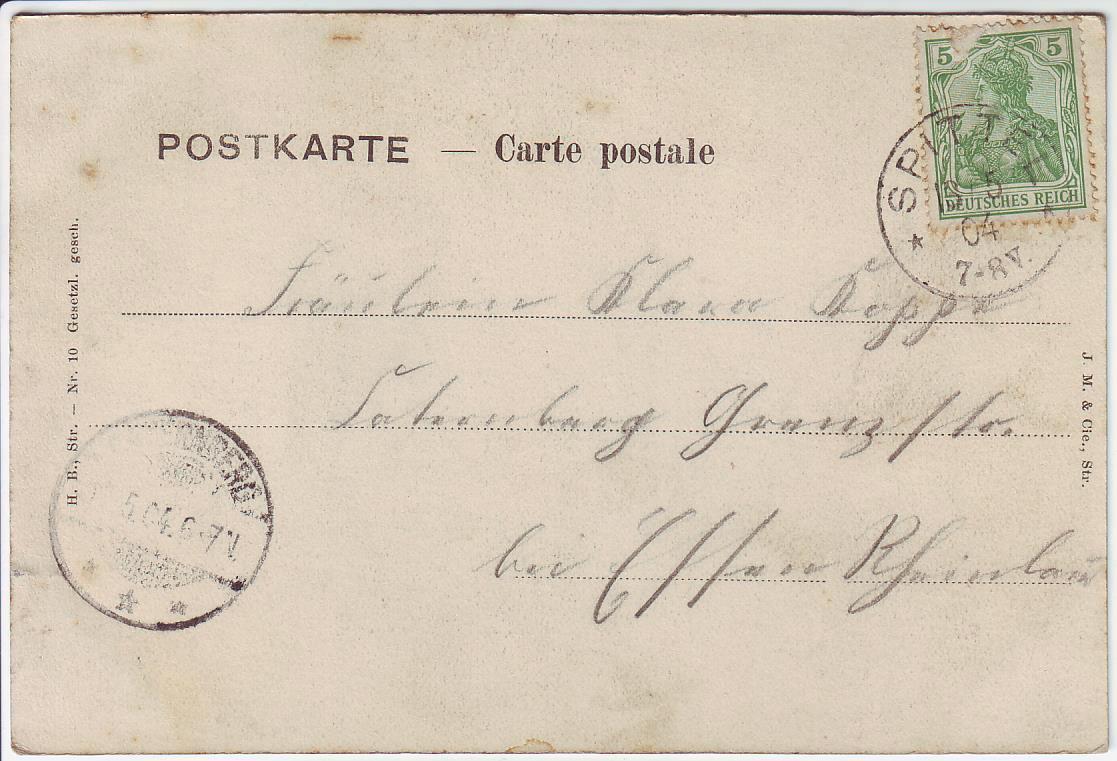 5 5
DEUTSCHES REICH
POSTKARTE — Carte postale
SPITTEL
5
04
7-8V.
H. B., Str. — Nr. 10 Gesetzl. gesch.
Fräulein Klara Koppe
Katernberg Grenzstr.
bei Essen Rheinland
J. M. & Cie., Str.
5.04.6-7V.